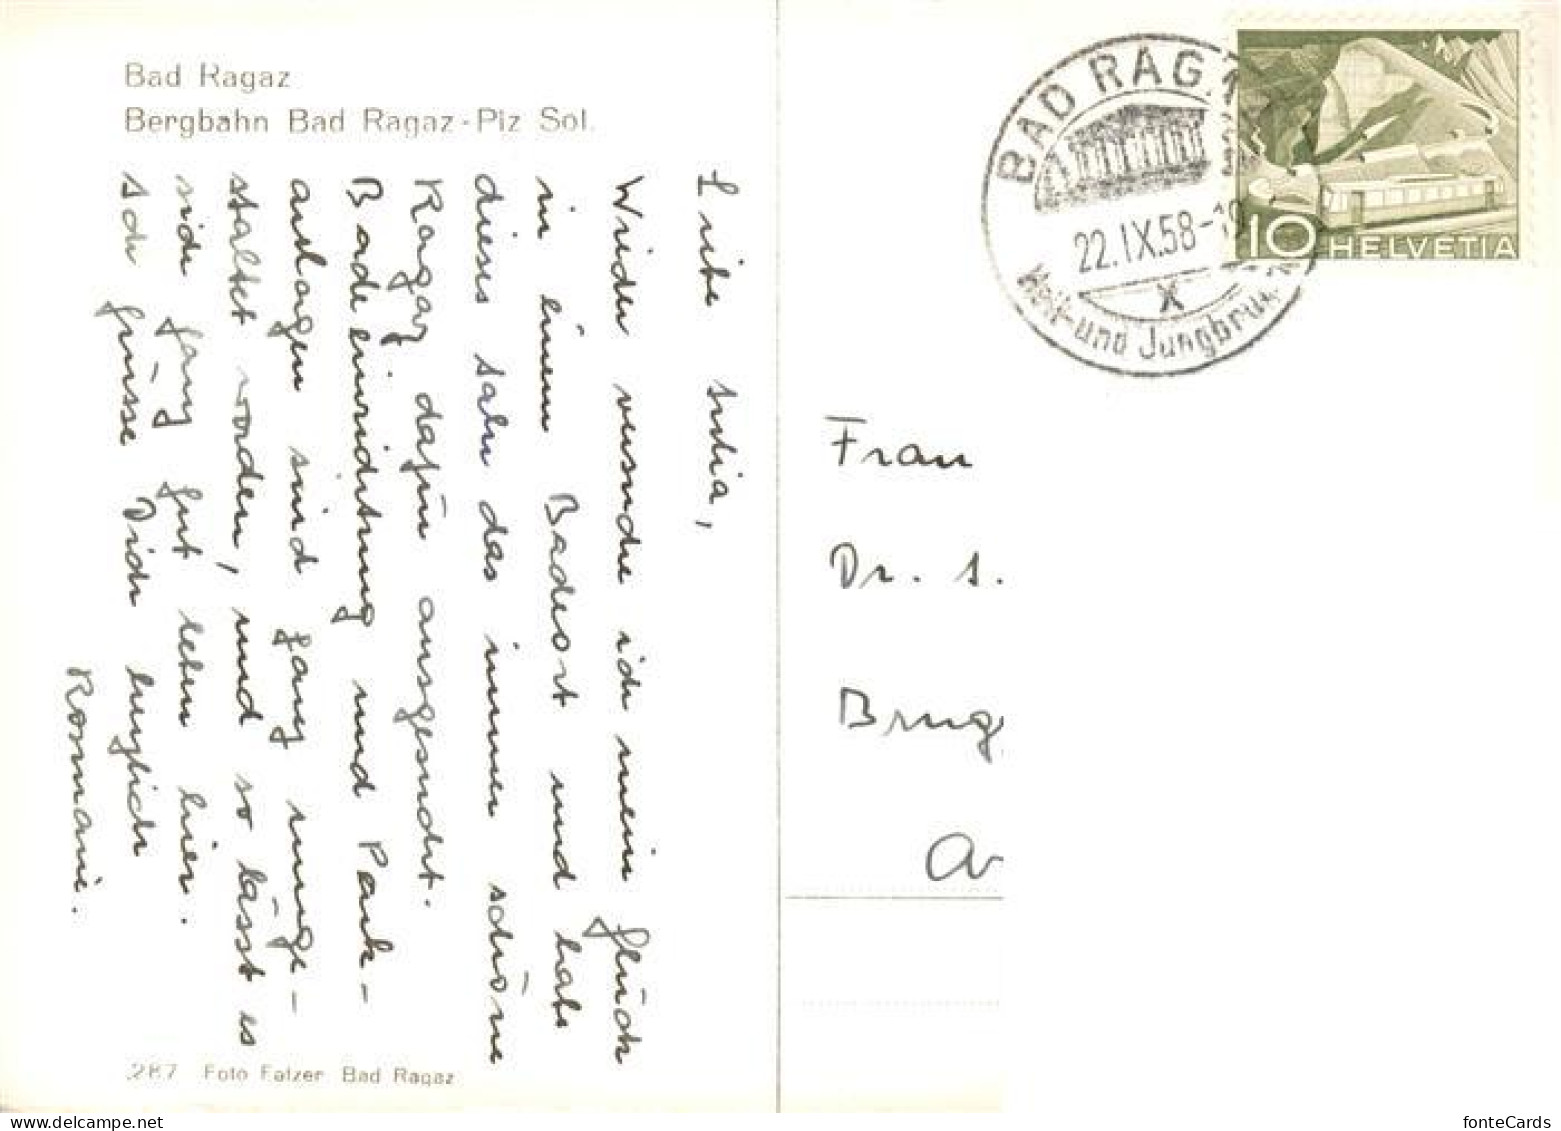 Bad Ragaz
Bergbahn Bad Ragaz-Piz Sol.
Liebe Silvia,
Wieder versuche ich mein Glück
in einem Badeort und habe
dieses Jahr das immer schöne
Ragaz dafür ausgesucht.
Badeeinrichtung und Park-
anlagen sind ganz umge-
staltet worden, und so lässt es
sich ganz gut leben hier.
Ich grüsse Dich herzlich
Rosmarie.
287 Foto Fetzer Bad Ragaz
BAD RAGA
22.IX.58-19
X
Heil- und Jungbru
10 HELVETIA
Frau
Dr. S.
Brug
fonteCards
delcampe.net